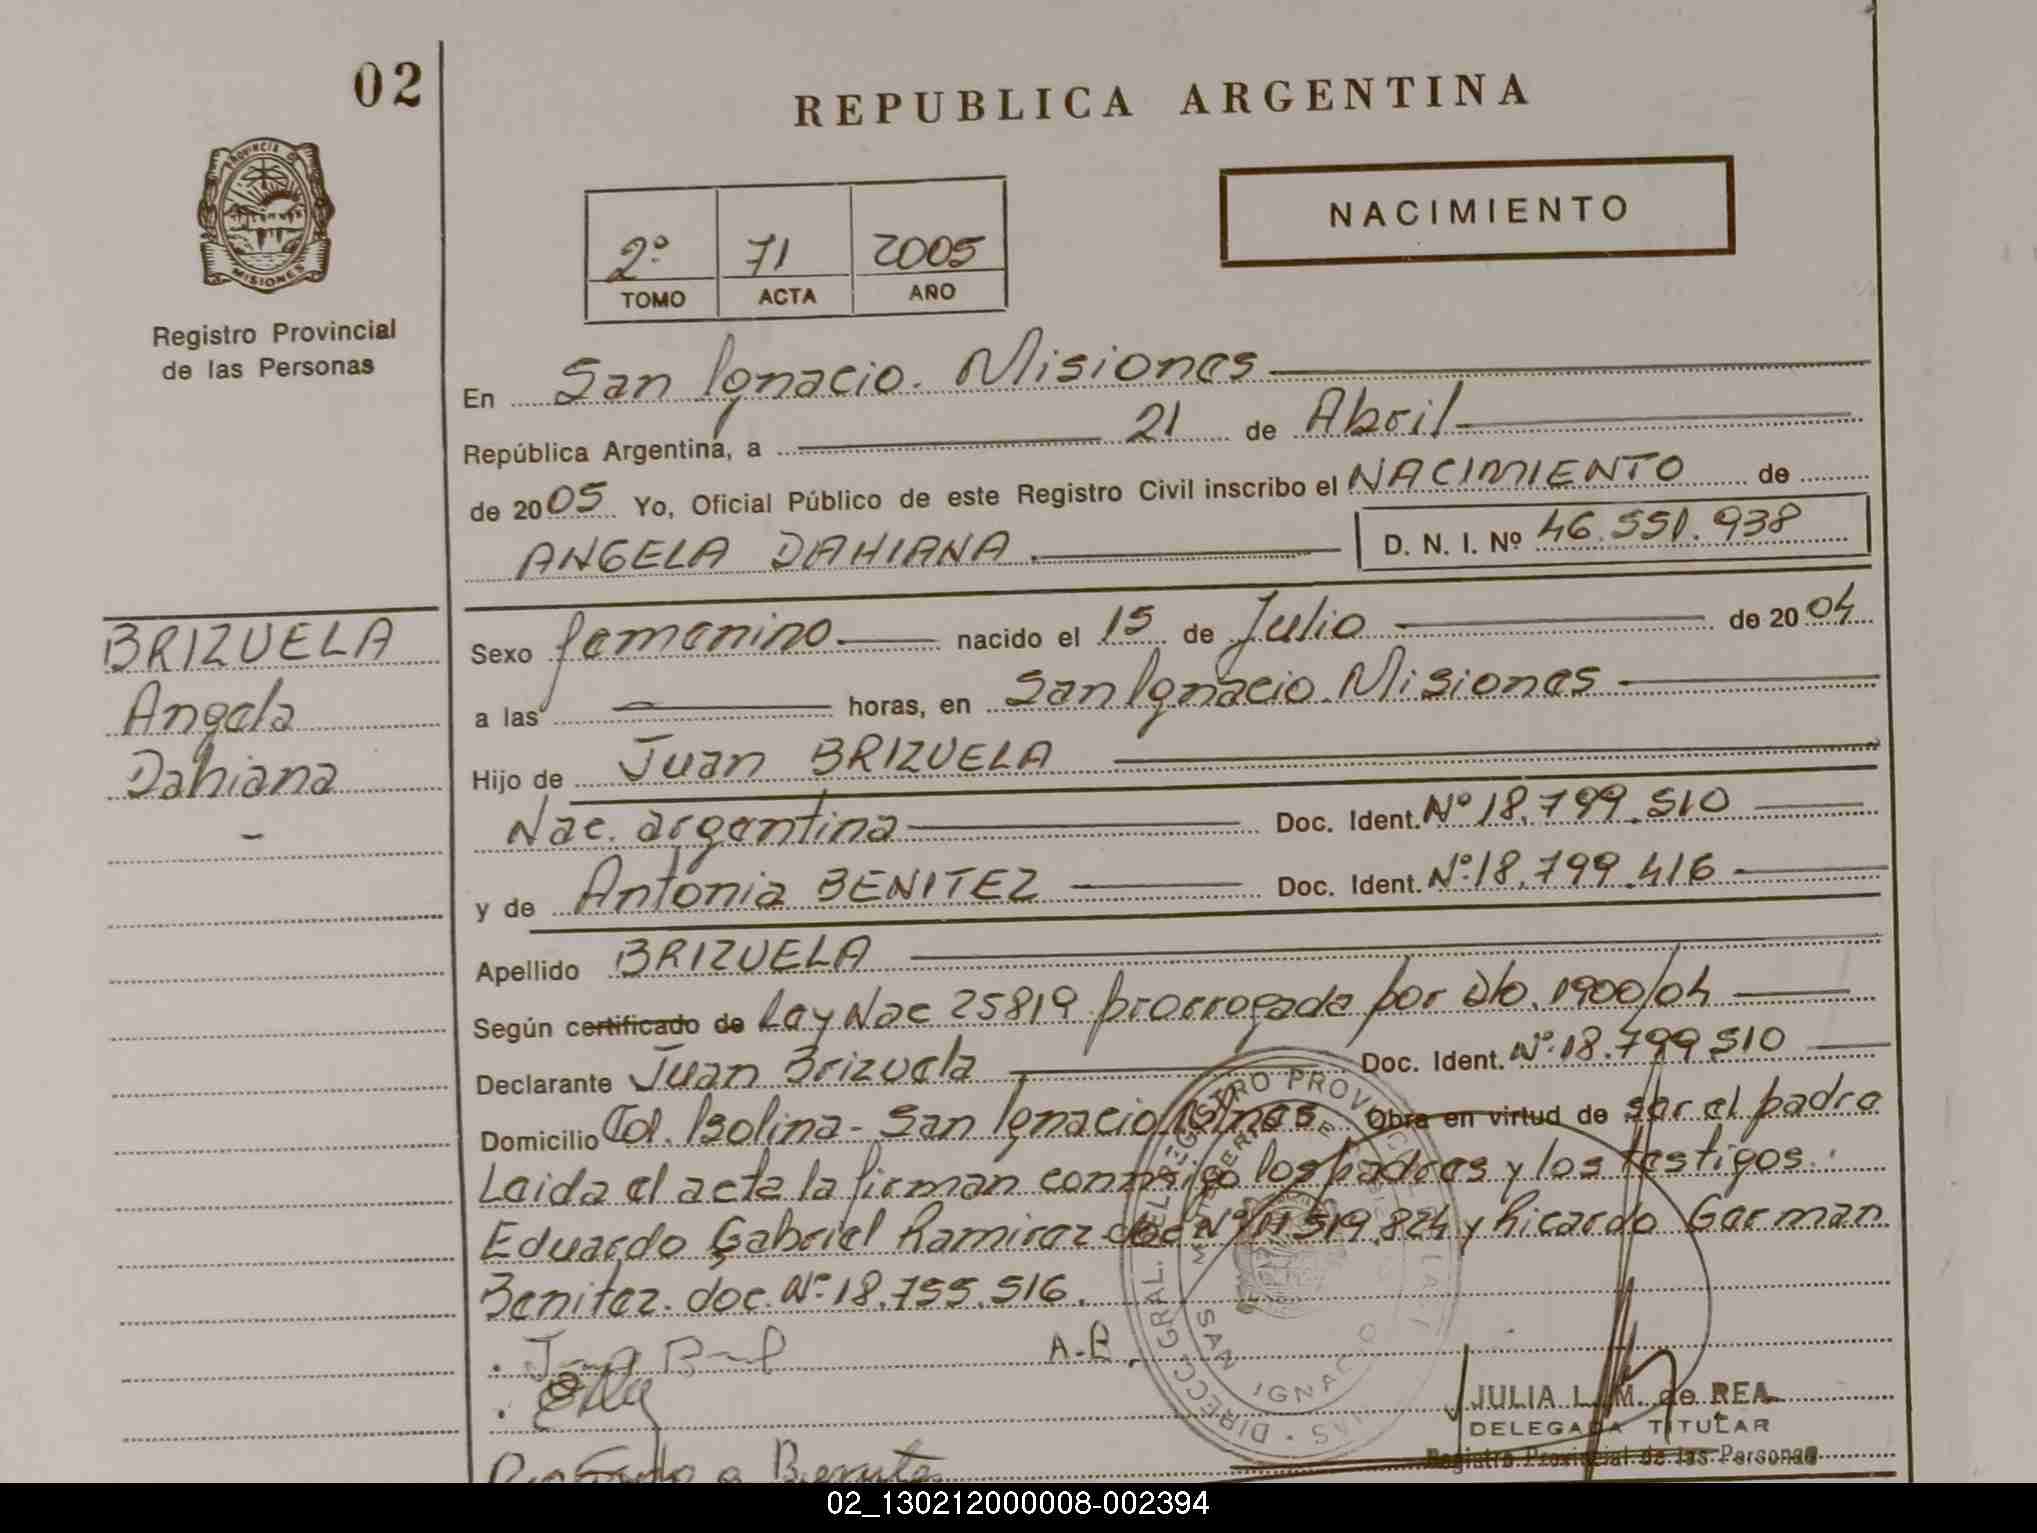 02
REPUBLICA ARGENTINA
PROVINCIA DE
MISIONES
Registro Provincial
de las Personas
NACIMIENTO
2º 71 2005
TOMO ACTA AÑO
En San Ignacio. Misiones
República Argentina, a 21 de Abril
de 2005 Yo, Oficial Público de este Registro Civil inscribo el NACIMIENTO de
ANGELA DAHIANA. D. N. I. Nº 46.551.938
BRIZUELA
Angela
Dahiana
Sexo femenino nacido el 15 de Julio de 2004
a las horas, en San Ignacio. Misiones
Hijo de Juan BRIZUELA
Nac. argentina Doc. Ident. Nº 18.799.510
y de Antonia BENITEZ Doc. Ident. Nº:18.799.416
Apellido BRIZUELA
Según certificado de Ley Nac 25819 prorrogada por Dto. 1900/04
Declarante Juan Brizuela Doc. Ident. Nº:18.799.510
Domicilio Col. Isolina - San Ignacio Mnes Obra en virtud de ser el padre
Leida el acta la firman conmigo los padres y los testigos.
Eduardo Gabriel Ramirez doc Nº 11.519.824 y Ricardo German
Benitez. doc. Nº:18.755.516.
A-B.
DIRECC. GRAL. DEL REGISTRO PROVINCIAL DE LAS
SAN IGNACIO
JULIA L. M. de REA
DELEGADA TITULAR
Registro Provincial de las Personas
02_130212000008-002394